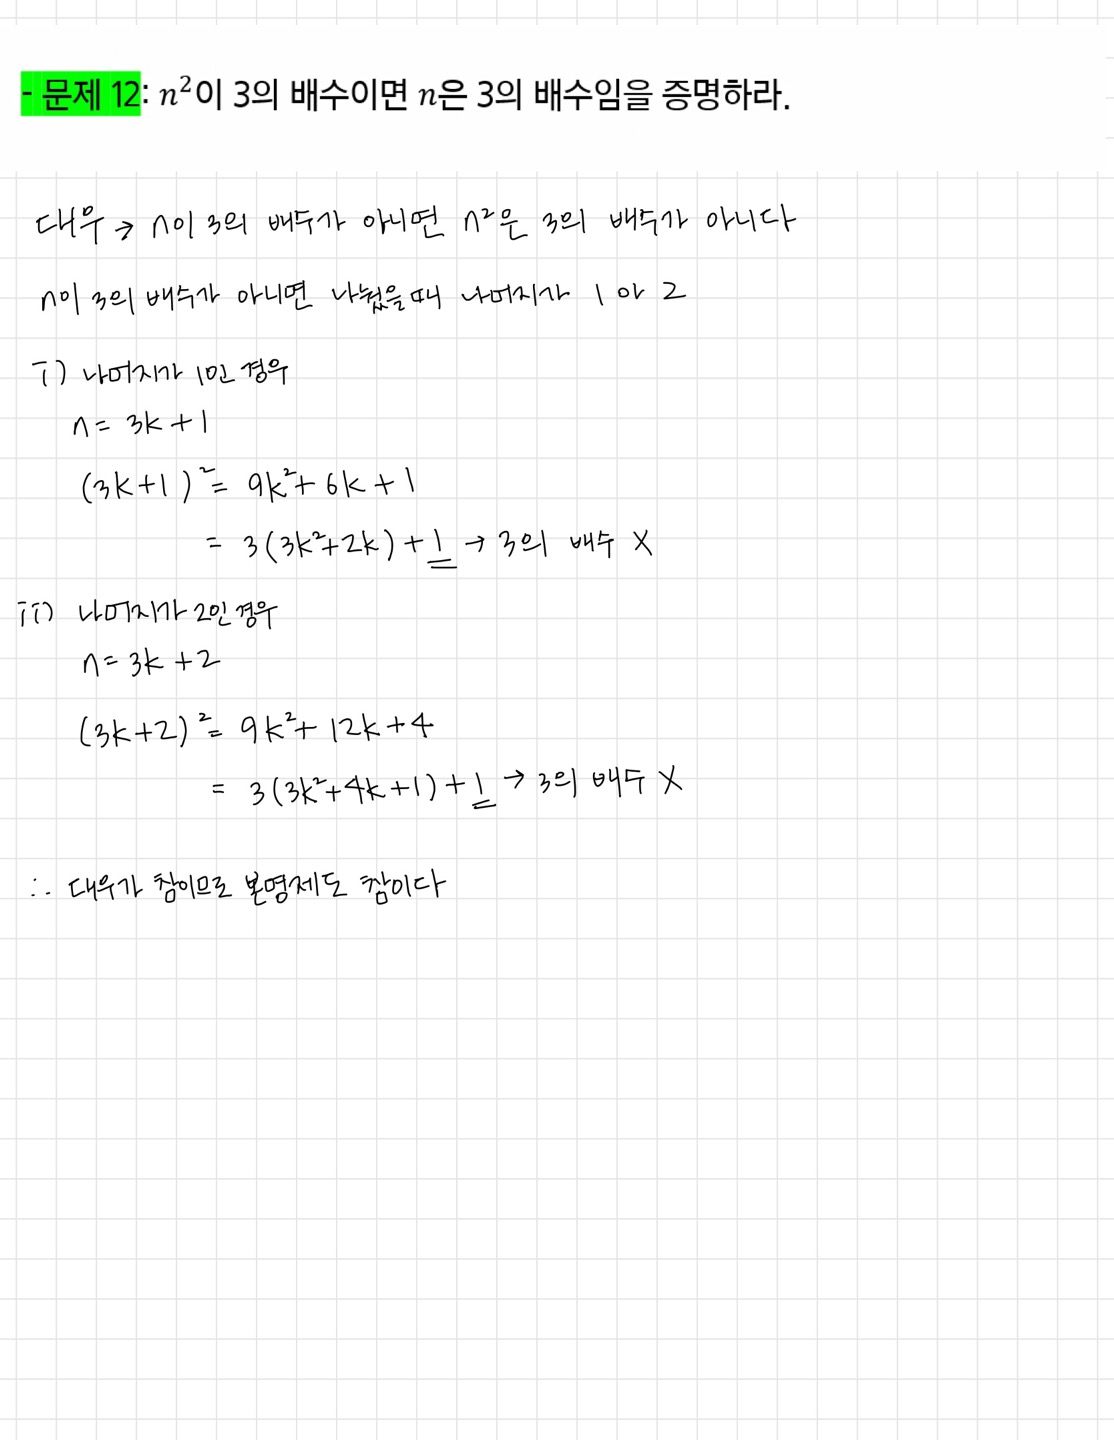 - 문제 12: n²이 3의 배수이면 n은 3의 배수임을 증명하라.
대우 → n이 3의 배수가 아니면 n²은 3의 배수가 아니다
n이 3의 배수가 아니면 나눴을때 나머지가 1 or 2
i) 나머지가 1인 경우
n = 3k + 1
(3k+1)² = 9k² + 6k + 1
= 3(3k²+2k) + 1 → 3의 배수 X
ii) 나머지가 2인 경우
n = 3k + 2
(3k+2)² = 9k² + 12k + 4
= 3(3k²+4k+1) + 1 → 3의 배수 X
∴ 대우가 참이므로 본명제도 참이다